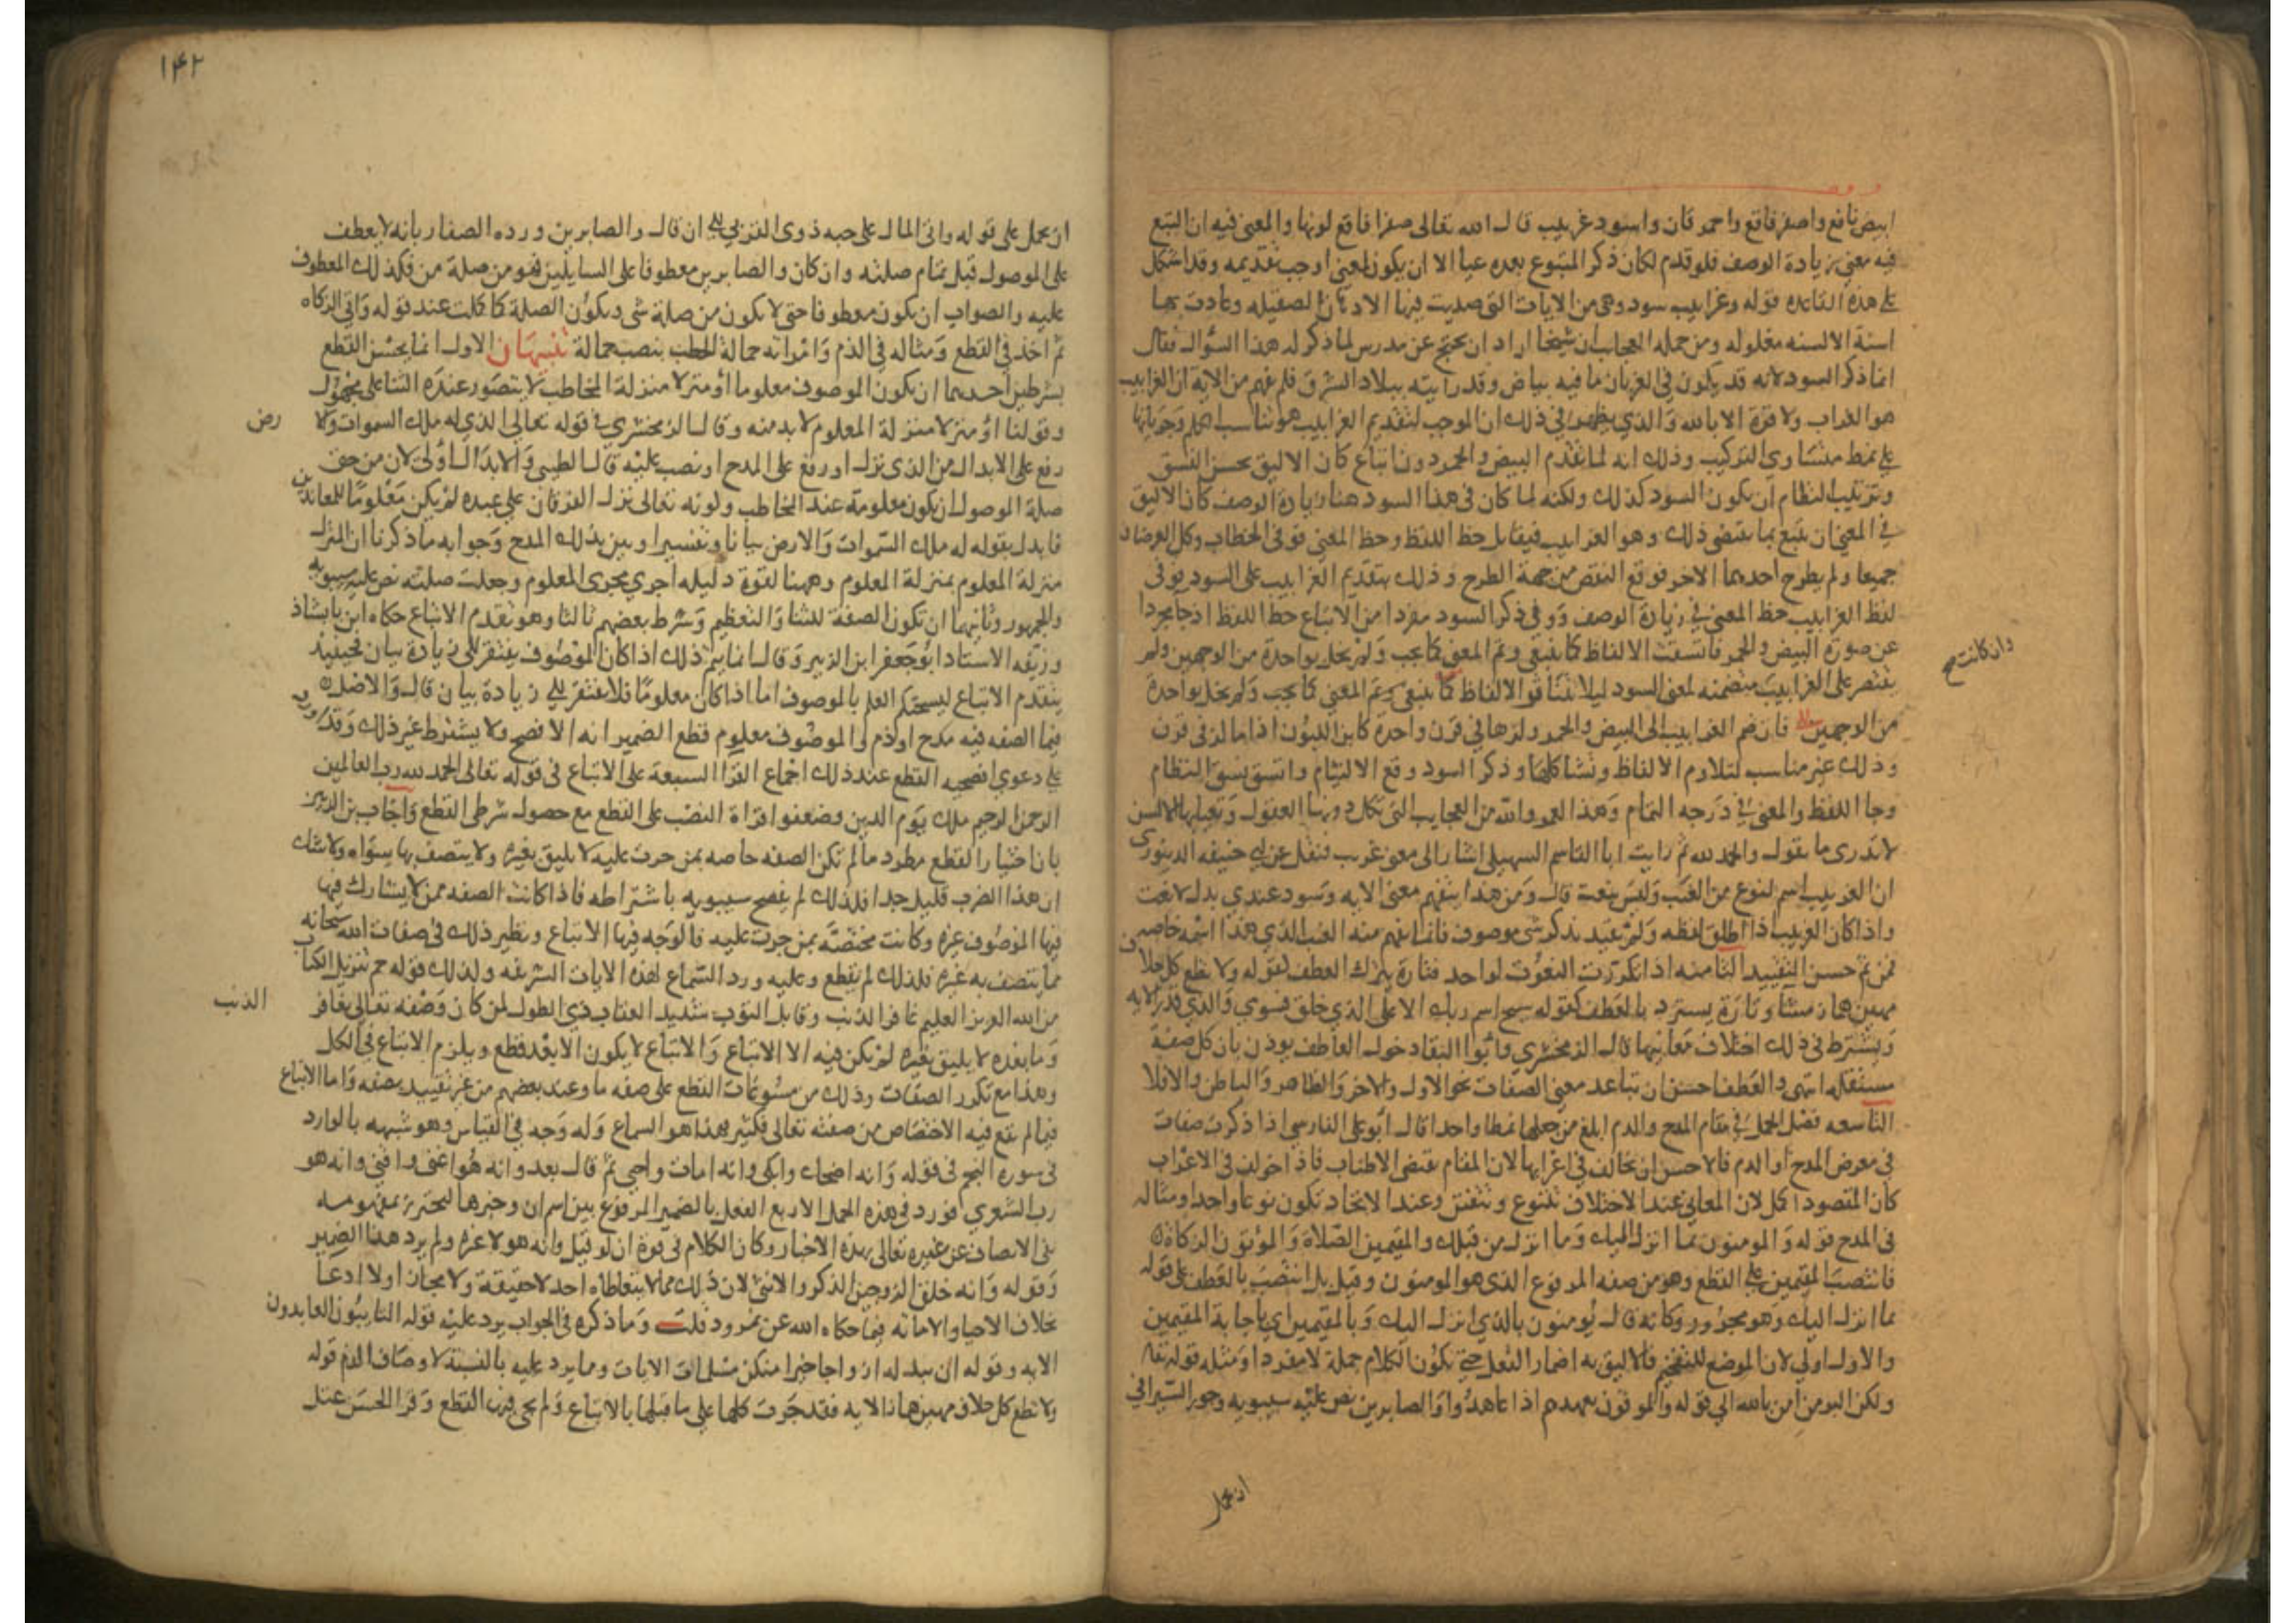 ابيض ناصع واصفر فاقع واحمر قان واسود غربيب قال الله تعالى صفرا فاقع لونها والمعنى فيه ان التبع
فيه معنى زيادة الوصف فلو قدم لكان ذكر المتبوع بعده عيا الا ان يكون لمعنى اوجب تقديمه وقد اشكل
على هذه القاعده قوله وغرابيب سود وهى من الايات التى صديت فيها الاذهان الصقيله وعادت بها
اسنة الالسنه مغلوله ومن جمله العجاب ان شيخا اراد ان يحتج عن مدرس لما ذكر له هذا السؤال فقال
انما ذكر السود لانه قد يكون في الغربان ما فيه بياض وقد رايته ببلاد الشرق فلم يفهم من الايه ان الغرابيب
هو الغراب ولا قوة الا بالله والذي يظهر في ذلك ان الموجب لتقديم الغرابيب هو تناسب الكلم وجريانها
على نمط متساوى التركيب وذلك انه لما تقدم البيض والحمر دون اتباع كان الاليق بحسن النسق
وترتيب النظام ان يكون السود كذلك ولكنه لما كان في هذا السود هنا زيادة الوصف كان الاليق
في المعنى ان يتبع بما يقتضى ذلك وهو الغرابيب فيقابل حظ اللفظ وحظ المعنى فوفى الخطاب وكل الغرضان
جميعا ولم يطرح احدهما الاخر فوقع النقص من جهة الطرح وذلك بتقديم الغرابيب على السود فوفى
لفظ الغرابيب حظ المعنى في زيادة الوصف ووفى ذكر السود مفردا من الاتباع حظ اللفظ اذ جا مجردا
عن صورة البيض والحمر فاتسقت الالفاظ كما ينبغى وتم المعنى كما يجب ولم يخل بواحدة من الوجهين ولم
يقتصر على الغرابيب متضمنه لمعنى السود ليلا تتنافر الالفاظ كما ينبغى وتم المعنى كما يجب ولم يخل بواحدة
وان كانت صح
من الوجهين فان ضم الغرابيب الى البيض والحمر ولزها في قرن واحدة كابن اللبون اذا ما لز فى قرن
وذلك غير مناسب لتلاوم الالفاظ وتشاكلها وذكر السود وقع الالتيام واتسق نسق النظام
وجا اللفظ والمعنى في درجه التمام وهذا لعمر والله من العجايب التى تكل دونها العقول وتعيا بها الالسن
لا تدرى ما تقول والحمد لله ثم رايت ابا القاسم السهيلى اشار الى معنى غريب فنقل عن ابي حنيفه الدينورى
ان الغربيب اسم لنوع من العنب وليس بنعت قال ومن هذا يتفهم معنى الايه وسود عندي بدل لا نعت
واذا كان الغربيب اذا اطلق لفظه ولم يقيد بذكر شى موصوف فانما يفهم منه العنب الذي هذا اسمه خاصه
فمن ثم حسن التقييد الثامنه اذا تكررت النعوت لواحد فتارة يترك العطف لقوله ولا تطع كل حلاف
مهين هماز مشا وتارة يسترد بالعطف كقوله سبح اسم ربك الاعلى الذي خلق فسوى والذي قدر الايه
ويشترط في ذلك اختلاف معانيها قال الزمخشري وابو البقا دخول العاطف يوذن بان كل صفة
مستقله انتهى والعطف احسن ان تباعد معنى الصفات نحو الاول والاخر والظاهر والباطن والا فلا
التاسعه فصل الجمل في مقام المدح والذم ابلغ من جعلها نمطا واحدا قال ابو على الفارسي اذا ذكرت صفات
في معرض المدح او الذم فالاحسن ان تخالف في اعرابها لان المقام يقتضى الاطناب فاذا خولف في الاعراب
كان المقصود اكمل لان المعانى عند الاختلاف تتنوع وتتفنن وعند الاتحاد تكون نوعا واحدا ومثاله
فى المدح قوله والمومنون بما انزل اليك وما انزل من قبلك والمقيمين الصلاة والمؤتون الزكاة
فانتصب المقيمين على القطع وهو من صفه المرفوع الذى هو المومنون وقيل بل انتصب بالعطف على قوله
بما انزل اليك وهو مجرور وكانه قال يومنون بالذي انزل اليك وبالمقيمين اي باجابة المقيمين
والاول اولي لان الموضع للتفخيم فالاليق به اضمار الفعل حتى يكون الكلام جملة لا مفردا ومثله قوله تعا
ولكن البر من امن بالله الى قوله والموفون بعهدهم اذا عاهدوا والصابرين نص عليه سيبويه وجوز السيرافى
ان يحمل
١٤٢
ان يحمل على قوله واتى المال على حبه ذوى القربى الى ان قال والصابرين ورده الصفار بانه لا يعطف
على الموصول قبل تمام صلته وان كان والصابرين معطوفا على السايلين فهو من صلة من فكذلك المعطوف
عليه والصواب ان يكون معطوفا حتى لا يكون من صلة شى ويكون الصلة كا كلت عند قوله واتى الزكاه
ثم اخذ في القطع ومثاله في الذم وامراته حمالة الحطب بنصب حمالة تنبيهان الاول انما يحسن القطع
بشرطين احدهما ان يكون الموصوف معلوما او منزلا منزلة المخاطب لا يتصور عنده الثنا على مجهول
وقولنا او منزلا منزلة المعلوم لا بد منه وقال الزمخشري في قوله تعالى الذي له ملك السموات ولا
رض
رفع على الابدال من الذى نزل او رفع على المدح او نصب عليه قال الطيبى والابدال اولى لان من حق
صلة الموصول ان يكون معلومة عند المخاطب ولونه تعالى نزل الفرقان على عبده لم يكن معلوما للمعاندين
فابدل بقوله له ملك السموات والارض بيانا وتفسيرا وبين بذلك المدح وجوابه ما ذكرنا ان المنزل
منزلة المعلوم بمنزلة المعلوم وههنا لقوة دليله اجرى مجرى المعلوم وجعلت صلته نص عليه سيبويه
والجمهور وثانيهما ان تكون الصفة للثنا والتعظيم وشرط بعضهم ثالثا وهو تقدم الاتباع حكاه ابن بابشاذ
وزيفه الاستاد ابو جعفر ابن الزبير وقال انما يتم ذلك اذا كان الموصوف يفتقر الى زيادة بيان فحينيذ
يتقدم الاتباع ليستحكم العلم بالموصوف اما اذا كان معلوما فلا يفتقر الى زيادة بيان قال والاصل
فيما الصفه فيه مدح او ذم والموصوف معلوم قطع الضمير انه الافصح ولا يشترط غير ذلك وقد اورد
على دعوى افصحيه القطع عند ذلك اجماع القرا السبعة على الاتباع في قوله تعالى الحمد لله رب العالمين
الرحمن الرحيم ملك يوم الدين وضعفوا قراة النصب على القطع مع حصول شرطى القطع واجاب بن الزبير
بان اختيار القطع مطرد ما لم تكن الصفه خاصه بمن جرت عليه لا يليق بغيره ولا يتصف بها سواه ولا شك
ان هذا الضرب قليل جدا فلذلك لم يفصح سيبويه باشتراطه فاذا كانت الصفه ممن لا يشارك فيها
فيها الموصوف غيره وكانت مختصة بمن جرت عليه فالوجه فيها الاتباع ونظير ذلك في صفات الله سبحانه
مما يتصف به غيره فلذلك لم يقطع وعليه ورد السماع لهذه الايات الشريفه ولذلك قوله حم تنزيل الكتاب
من الله العزيز العليم غافر الذنب وقابل التوب شديد العقاب ذي الطول لمن كان وصفه تعالى بغافر
الذنب
وما بعده لا يليق بغيره لم يكن فيه الا الاتباع والاتباع لا يكون الا بعد قطع ويلزم الاتباع في الكل
وهذا مع تكرر الصفات وذلك من مسوغات القطع على صفه ما وعند بعضهم من غير تقييد بصفه واما الاتباع
فيما لم تقع فيه الاختصاص من صفته تعالى فكثير هذا هو السماع وله وجه في القياس وهو شبهه بالوارد
فى سوره النجم فى قوله وانه اضحك وابكى وانه امات واحيى ثم قال بعد وانه هو اغنى واقنى وانه هو
رب الشعرى فورد فى هذه الجمل الاربع الفعل بالضمير المرفوع بين اسم ان وخبرها ليحترز بمفهومه
نفى الاتصاف عن غيره تعالى بهذه الاخبار وكان الكلام في قوة ان لو قيل وانه هو لا غيره ولم يرد هذا الضمير
وقوله وانه خلق الزوجين الذكر والانثى لان ذلك مما لا يتعاطاه احد لا حقيقة ولا مجازا ولا ادعا
بخلاف الاحيا والاماته فيما حكاه الله عن نمرود قلت وما ذكره في الجواب يرد عليه قوله التايبون العابدون
الايه وقوله ان يبدله ازواجا خيرا منكن مسلمات الايات ومما يرد عليه بالنسبة لاوصاف الذم قوله
ولا تطع كل حلاف مهين هماز الايه فقد جرت كلها على ما قبلها بالاتباع ولم يجى فيها القطع وقرا الحسن عتل